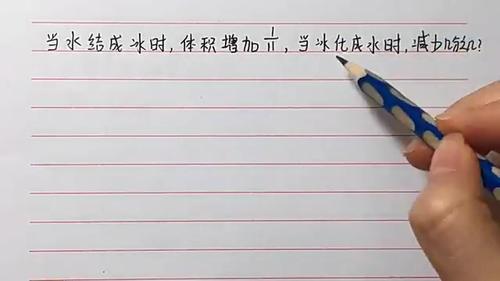 当水结成冰时,体积增加1/11,当冰化成水时,减少几分之几?